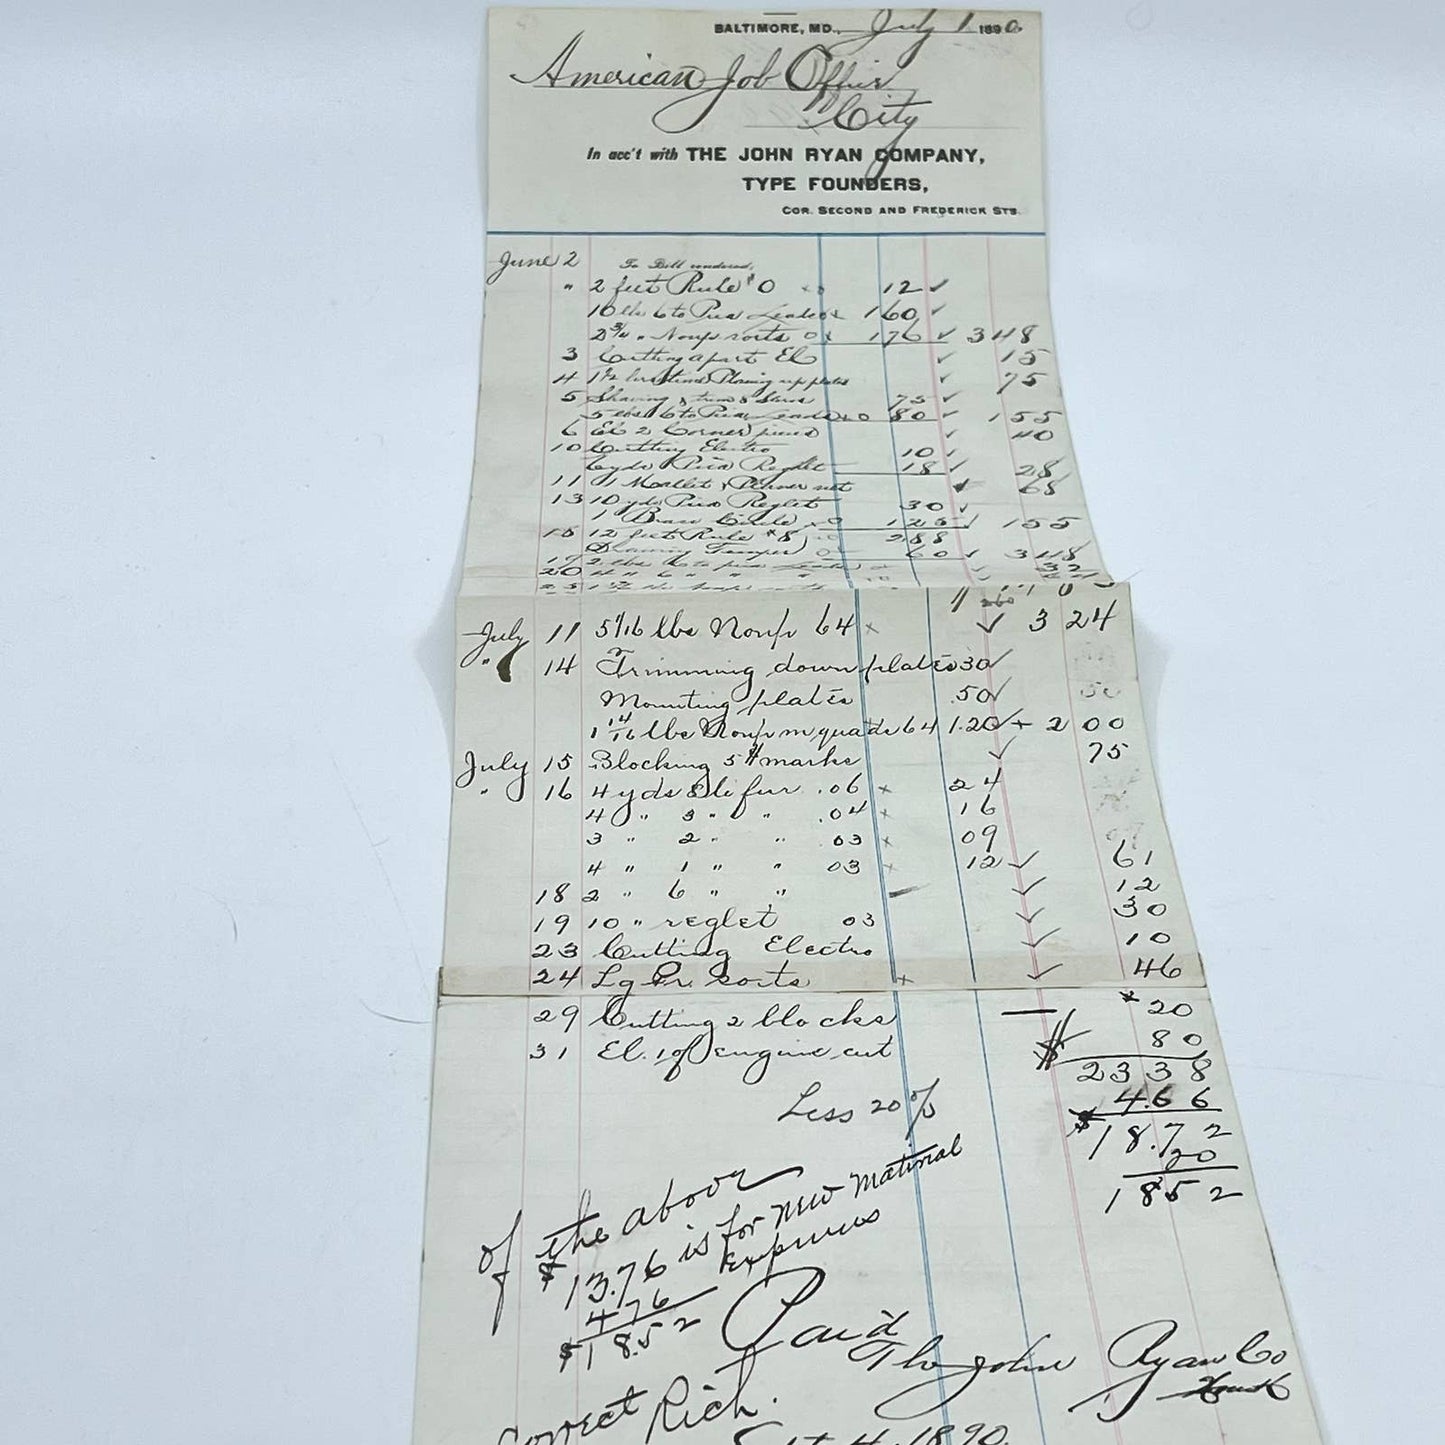 BALTIMORE, MD., July 1 1890
American Job Office
City
In acc't with THE JOHN RYAN COMPANY,
TYPE FOUNDERS,
COR. SECOND AND FREDERICK STS.
June 2 To Bill rendered,
" 2 feet Rule # 0 12 ✓
10 lbs 6 to Pica Leads 160 ✓
2 3/4 " Nonp sorts 176 ✓ 3 48
3 Cutting apart El ✓ 15
4 1 1/2 up plates ✓ 75
5 Shaving & 75 ✓
5 lbs 6 to Pica Leads 80 ✓ 1 55
6 El 2 Corner pieces ✓ 40
10 Cutting Electro 10 ✓
6 yds Pica Reglet 18 ✓ 28
11 1 Mallet & Planer net 68
13 10 yds Pica Reglet 30 ✓
1 Brass Circle 125 ✓ 1 55
15 12 feet Rule # 8 288
60 ✓ 3 48
19 2 lbs 6 to pica Leads ✓ 32
20 4 " 6 " " " ✓
July 11 5 1/16 lbs Nonp 64 x ✓ 3 24
" 14 Trimming down plates 30 ✓
Mounting plates .50 ✓
1 14/16 lbs Nonp m quads 64 1.20 ✓ + 2 00
July 15 Blocking 5 # marks ✓ 75
" 16 4 yds fur .06 x 24
4 " 3 " " .04 x 16
3 " 2 " " .03 x 09
4 " 1 " " 03 x 12 ✓ 61
18 2 " 6 " " ✓ 12
19 10 " reglet 03 ✓ 30
23 Cutting Electro ✓ 10
24 Lg Pr. sorts x ✓ 46
29 Cutting 2 blocks — 20
31 El. 1 of engine cut 80
$ 23 38
Less 20% 4.66
$ 18.72
20
18 52
of the above
$13.76 is for New Material
4 76 Expenses
$18.52
Paid
The John Ryan Co
Correct Rich.
Sept 4, 1890.